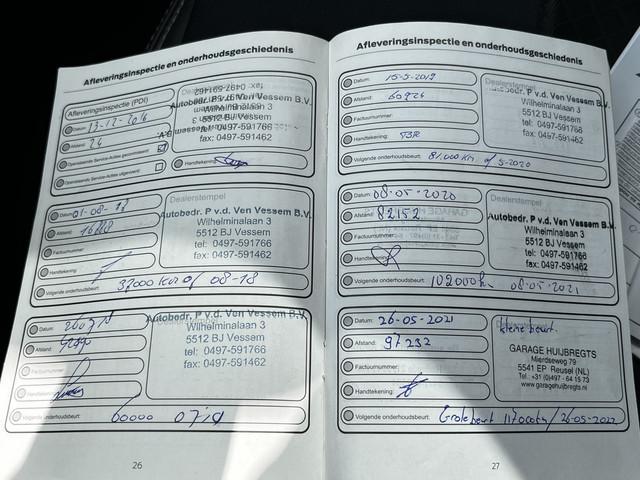 Afleveringsinspectie en onderhoudsgeschiedenis
Afleveringsinspectie (PDI)
Datum: 13-12-2016
Afstand: 24
Openstaande Service-Acties genoteerd
Openstaande Service-Acties uitgevoerd
Handtekening:
Dealerstempel
Autobedr. P v.d. Ven Vessem B.V.
Wilhelminalaan 3
5512 BJ Vessem
tel: 0497-591766
fax: 0497-591462
Datum: 01-08-17
Afstand:
Factuurnummer:
Handtekening:
Volgende onderhoudsbeurt: 37000 km of 08-18
Dealerstempel
Autobedr. P v.d. Ven Vessem B.V.
Wilhelminalaan 3
5512 BJ Vessem
tel: 0497-591766
fax: 0497-591462
Datum:
Afstand:
Factuurnummer:
Handtekening:
Volgende onderhoudsbeurt: 60000 07-19
Autobedr. P v.d. Ven Vessem B.V.
Wilhelminalaan 3
5512 BJ Vessem
tel: 0497-591766
fax: 0497-591462
26
Afleveringsinspectie en onderhoudsgeschiedenis
Datum: 15-5-2019
Afstand: 60926
Factuurnummer:
Handtekening:
Volgende onderhoudsbeurt: 81.000 km of 5-2020
Dealerstempel
Autobedr. P v.d. Ven Vessem B.V.
Wilhelminalaan 3
5512 BJ Vessem
tel: 0497-591766
fax: 0497-591462
Datum: 08-05-2020
Afstand: 82152
Factuurnummer:
Handtekening:
Volgende onderhoudsbeurt: 102000 km 08-05-2021
Dealerstempel
Autobedr. P v.d. Ven Vessem B.V.
Wilhelminalaan 3
5512 BJ Vessem
tel: 0497-591766
fax: 0497-591462
Datum: 26-05-2021
Afstand: 97232
Factuurnummer:
Handtekening:
Volgende onderhoudsbeurt: Grote beurt 117000km/26-05-2022
kleine beurt.
GARAGE HUIJBREGTS
Mierdseweg 79
5541 EP Reusel (NL)
Tel.: +31 (0)497 - 64 15 73
www.garagehuijbregts.nl
27